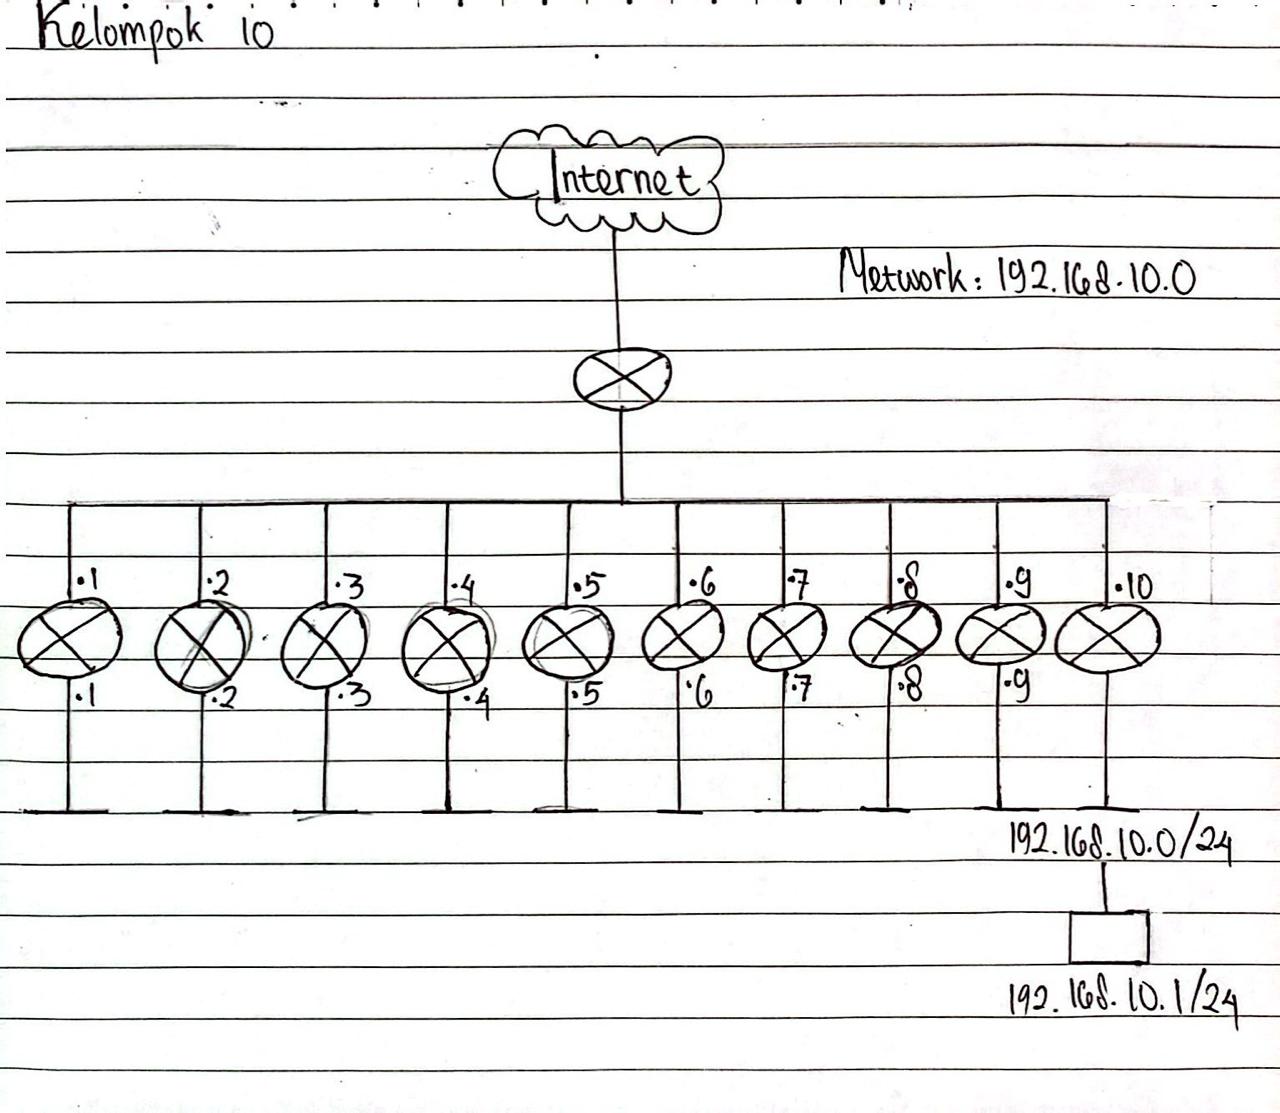 Kelompok 10
Internet
Network: 192.168.10.0
.1 .2 .3 .4 .5 .6 .7 .8 .9 .10
.1 .2 .3 .4 .5 .6 .7 .8 .9
192.168.10.0/24
192.168.10.1/24